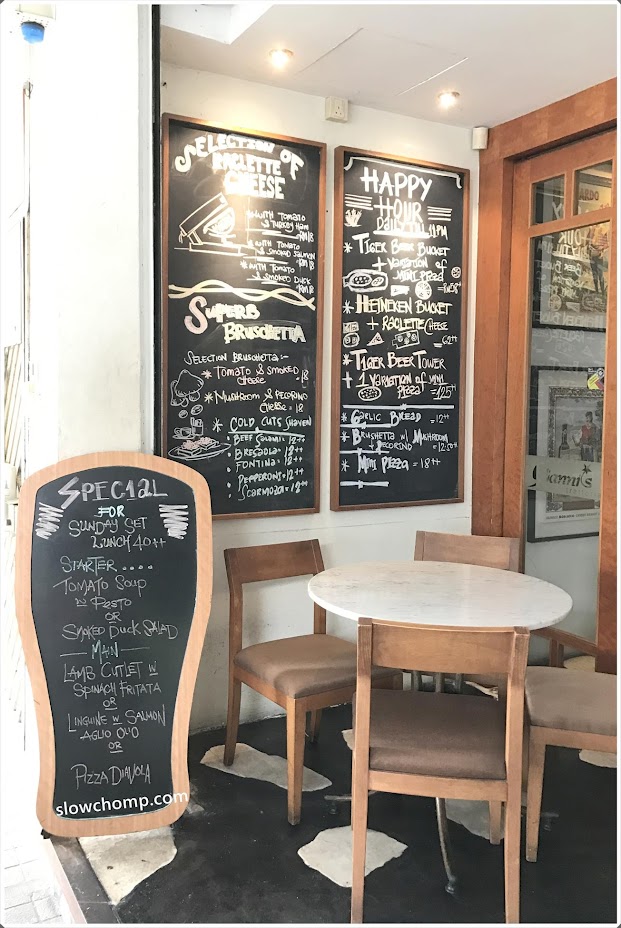 SELECTION OF
RACLETTE
CHEESE
* WITH TOMATO
& TURKEY HAM
RM18
* WITH TOMATO
& SMOKED SALMON
RM18
* WITH TOMATO
& SMOKED DUCK
RM18
SUPERB
BRUSCHETTA
SELECTION BRUSCHETTA:-
* TOMATO & SMOKED
CHEESE
* MUSHROOM & PECORINO
CHEESE = 18
* COLD CUTS SHAVEN
• BEEF SALAMI = 12++
• BRESAOLA = 12++
• FONTINA = 12++
• PEPPERONI = 12++
• SCARMOZA = 12++
HAPPY
HOUR
DAILY TILL 11PM
* TIGER BEER BUCKET
+ VARIATION OF
MINI PIZZA
* HEINEKEN BUCKET
+ RACLETTE CHEESE
62++
* TIGER BEER TOWER
+ 1 VARIATION OF MINI
PIZZA = 125++
* GARLIC BREAD = 12++
* BRUSHETTA W/ MUSHROOM
+ PECORINO = 12.50++
* MINI PIZZA = 18++
Gianni's
SPECIAL
FOR
SUNDAY SET
LUNCH 40++
STARTER ....
TOMATO SOUP
W PESTO
OR
SMOKED DUCK SALAD
MAIN
LAMB CUTLET W
SPINACH FRITATA
OR
LINGUINE W SALMON
AGLIO OLIO
OR
PIZZA DIAVOLA
slowchomp.com